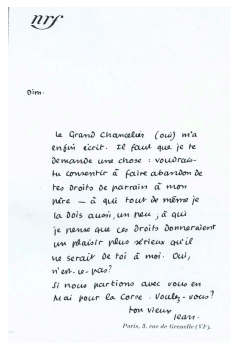 nrf
Dim.
Le Grand Chancelier (oui) m'a
enfin écrit. Il faut que je te
demande une chose : voudrais-
tu consentir à faire abandon de
tes droits de parrain à mon
père — à qui tout de même je
la dois aussi, un peu ; à qui
je pense que ces droits donneraient
un plaisir plus sérieux qu'il
ne serait de toi à moi. Oui,
n'est-ce-pas?
Si nous partions avec vous en
Mai pour la Corse. Voulez-vous?
ton vieux
Jean.
Paris, 3, rue de Grenelle (VIe).